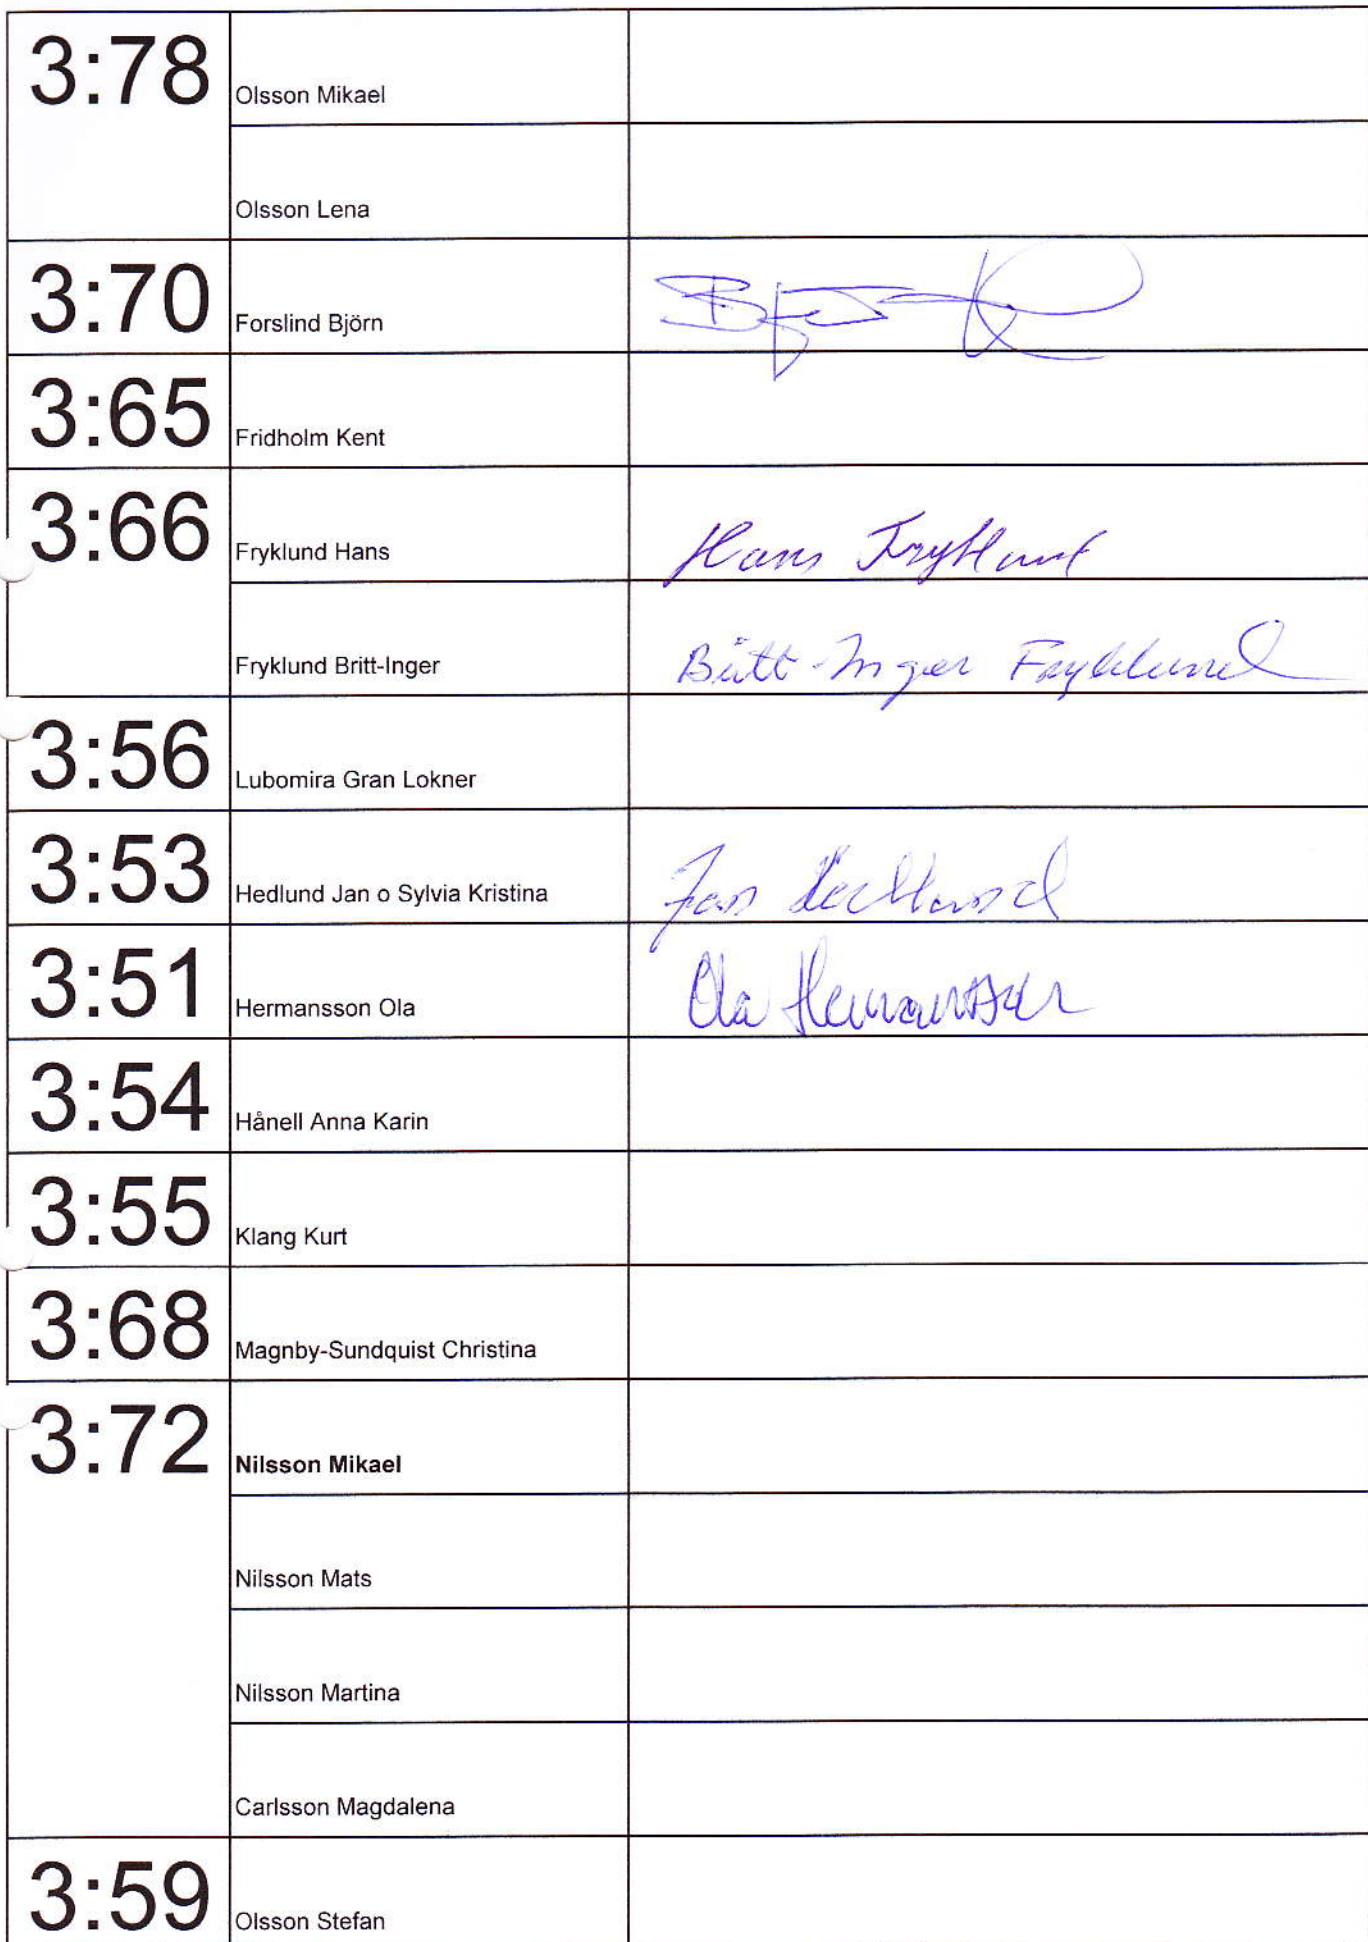 3:78 Olsson Mikael
Olsson Lena
3:70 Forslind Björn
3:65 Fridholm Kent
3:66 Fryklund Hans Hans Fryklund
Fryklund Britt-Inger Britt-Inger Fryklund
3:56 Lubomira Gran Lokner
3:53 Hedlund Jan o Sylvia Kristina Jan Hedlund
3:51 Hermansson Ola Ola Hermansson
3:54 Hånell Anna Karin
3:55 Klang Kurt
3:68 Magnby-Sundquist Christina
3:72 Nilsson Mikael
Nilsson Mats
Nilsson Martina
Carlsson Magdalena
3:59 Olsson Stefan